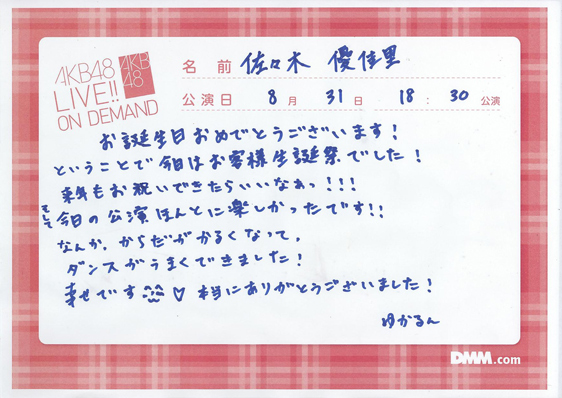 AKB48
LIVE!!
ON DEMAND
AKB
48
名前 佐々木 優佳里
公演日 8月 31日 18:30 公演
お誕生日おめでとうございます!
ということで今日はお客様生誕祭でした!
来年もお祝いできたらいいなぁっ!!!
そして今日の公演ほんとに楽しかったです!!
なんか、からだがかるくなって、
ダンスがうまくできました!
幸せです♡ 本当にありがとうございました!
ゆかるん
DMM.com